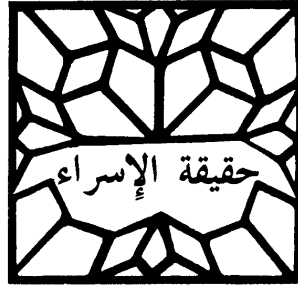 حقيقة الإسراء